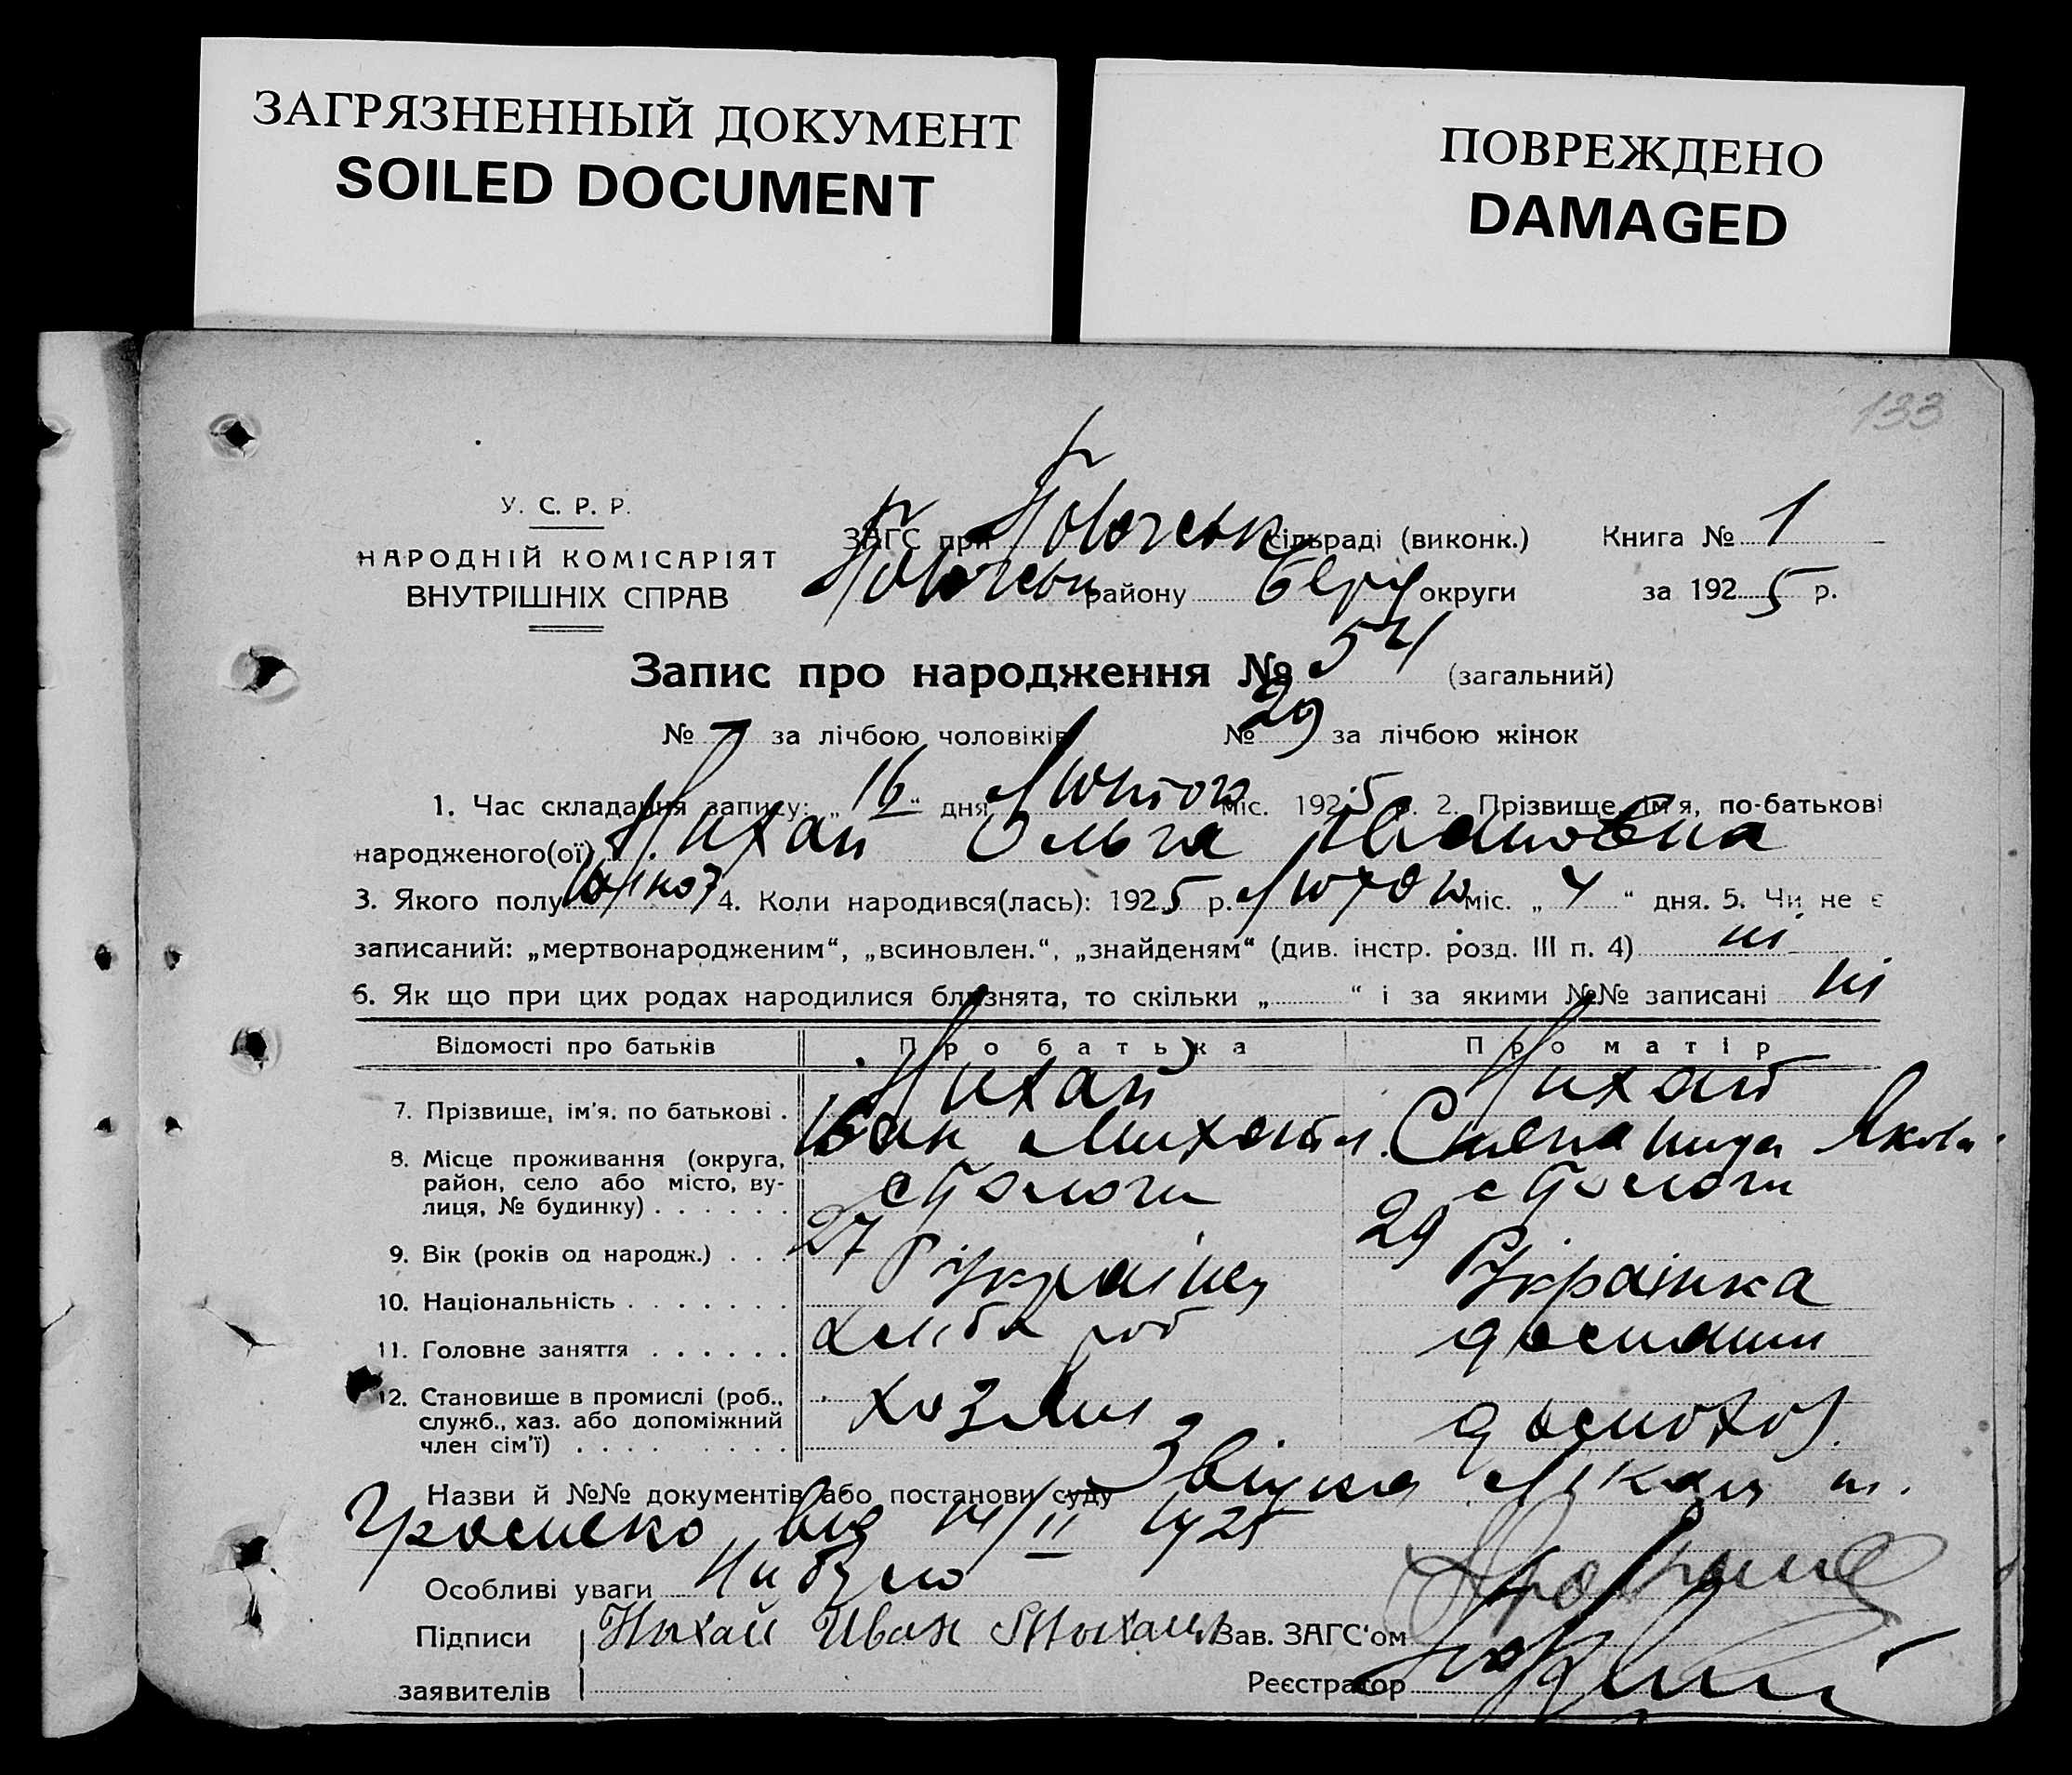 ЗАГРЯЗНЕННЫЙ ДОКУМЕНТ
SOILED DOCUMENT
ПОВРЕЖДЕНО
DAMAGED
133
У. С. Р. Р.
НАРОДНІЙ КОМІСАРІЯТ
ВНУТРІШНІХ СПРАВ
ЗАГС при сільраді (виконк.) Книга № 1
району округи за 1925 р.
Запис про народження № 54 (загальний)
№ за лічбою чоловіків № 29 за лічбою жінок
1. Час складання запису: „16“ дня Лютого міс. 1925 2. Прізвище, ім'я, по-батькові
народженого(ої) Нихай Ольга Ивановна
3. Якого полу 4. Коли народився(лась): 1925 р. міс. „4“ дня. 5. Чи не є
записаний: „мертвонародженим“, „всиновлен.“, „знайденям“ (див. інстр. розд. III п. 4) ні
6. Як що при цих родах народилися близнята, то скільки „ “ і за якими №№ записані ні
Відомості про батьків Про батька Про матір
7. Прізвище, ім'я, по батькові . Нихай Нихай
Іван Михайл. Степанида Якова
8. Місце проживання (округа,
район, село або місто, ву-
лиця, № будинку) . . . . . .
9. Вік (років од народж.) . . . 27 29
10. Національність . . . . . . . Українец Українка
11. Головне заняття . . . . . . хліба роб
12. Становище в промислі (роб.,
служб., хаз. або допоміжний
член сім'ї) . . . . . . . . . хозяин
Назви й №№ документів або постанови суду
від 14/II 1925
Особливі уваги Ни було
Підписи Нихай Иван Зав. ЗАГС'ом
заявителів Реєстратор